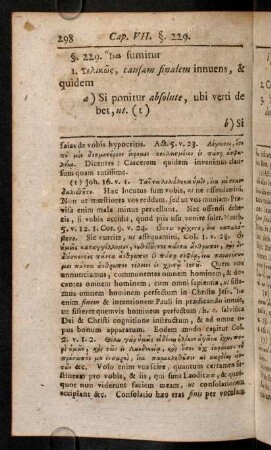 298 Cap. VII. §. 229.
§. 229. Ἵνα sumitur
1. Τελικῶς, causam finalem innuens, &
quidem
a) Si ponitur absolute, ubi verti de
bet, ut. (1)
b) Si
saias de vobis hypocritis. Act. 5. v. 23. Λέγοντες, ὅτι
Dicentes: Carcerem quidem invenimus clausum
quam tutissime.
(1) Joh. 16. v. 1. Ταῦτα λελάληκα ὑμῖν, ἵνα μὴ σκανδαλισθῆτε.
Hæc locutus sum vobis, ut ne offendamini.
Non ut mæstiores vos redderem, sed ut vos
vitia enim mala minus percellunt. Nec offendi debetis,
si vobis accidat, quod piis usu venire solet. Matth.
5. v. 12. 1 Cor. 9. v. 24. Οὕτω τρέχετε ἵνα καταλάβητε.
Sic currite, ut assequamini. Col. 1. v. 28. Ὃν
ἡμεῖς καταγγέλλομεν, νουθετοῦντες πάντα ἄνθρωπον, καὶ διδάσκοντες
πάντα ἄνθρωπον ἐν πάσῃ σοφίᾳ, ἵνα παραστήσωμεν
πάντα ἄνθρωπον τέλειον ἐν χριστῷ Ἰησοῦ. Quem nos
annunciamus, commonentes omnem hominem, & docentes
omnem hominem, cum omni sapientia, ut sistamus
omnem hominem perfectum in Christo Jesu. Ἵνα
enim finem & intentionem Pauli in prædicando innuit,
ut sisteret quemvis hominem perfectum, h. e. salvifica
Dei & Christi cognitione instructum, & ad omne opus
bonum apparatum. Eodem modo capitur Col.
2. v. 1. 2.
&c. Volo enim vos scire, quantum certamen sustineam
pro vobis, & iis, qui sunt Laodiceæ, & quotquot
non viderunt faciem meam, ut consolationem
accipiant &c. Consolatio hæc erat finis per voculam